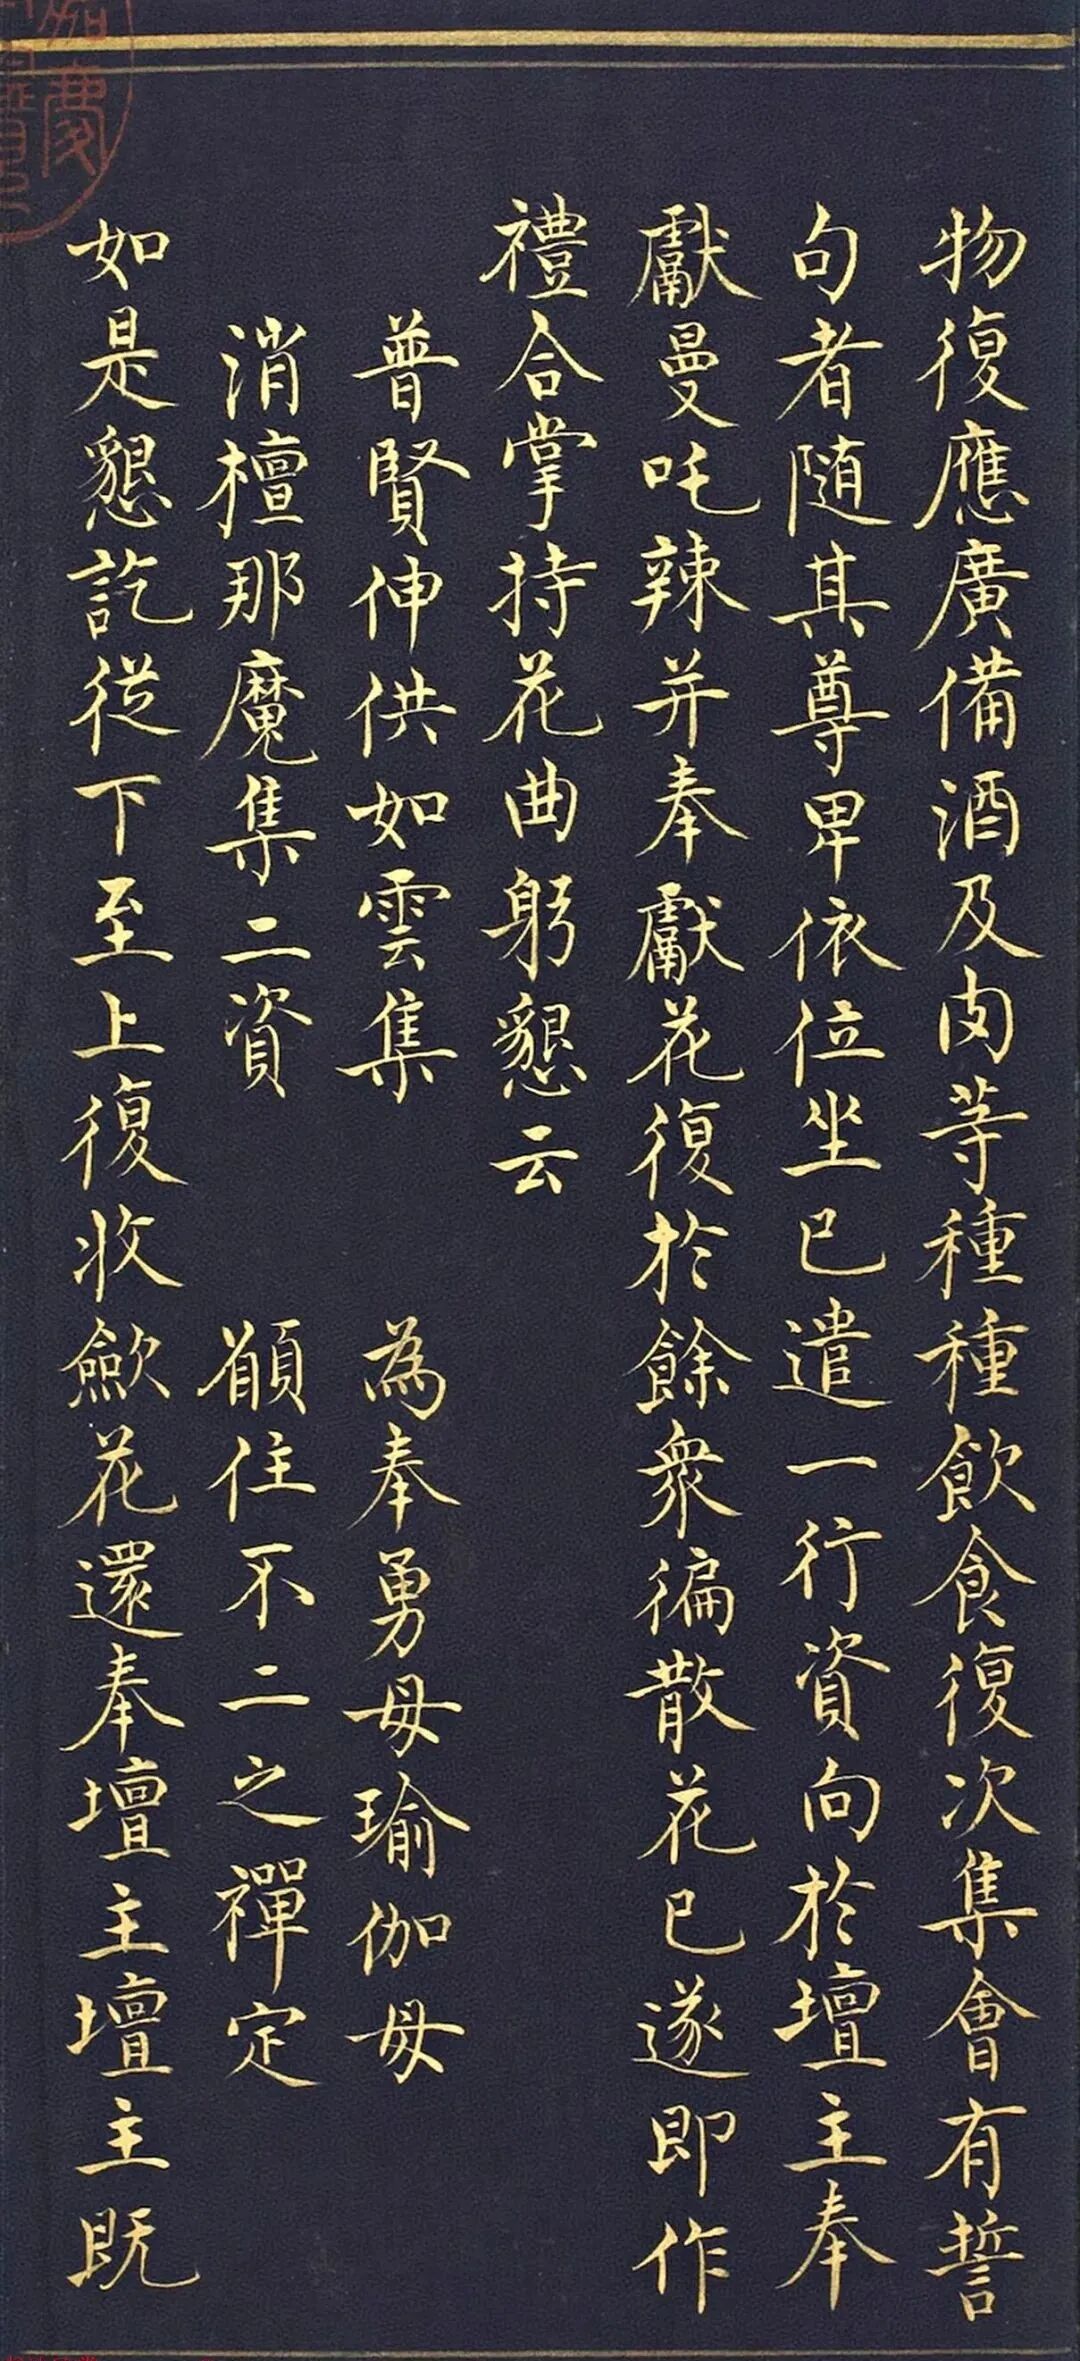 物復應廣備酒及肉等種種飲食復次集會有誓
句者随其尊卑依位坐已遣一行資向於壇主奉
獻曼吒辣并奉獻花復於餘衆徧散花已遂即作
禮合掌持花曲躬懇云
普賢伸供如雲集　為奉勇母瑜伽母
消檀那魔集二資　願住不二之禪定
如是懇訖從下至上復收歛花還奉壇主壇主既